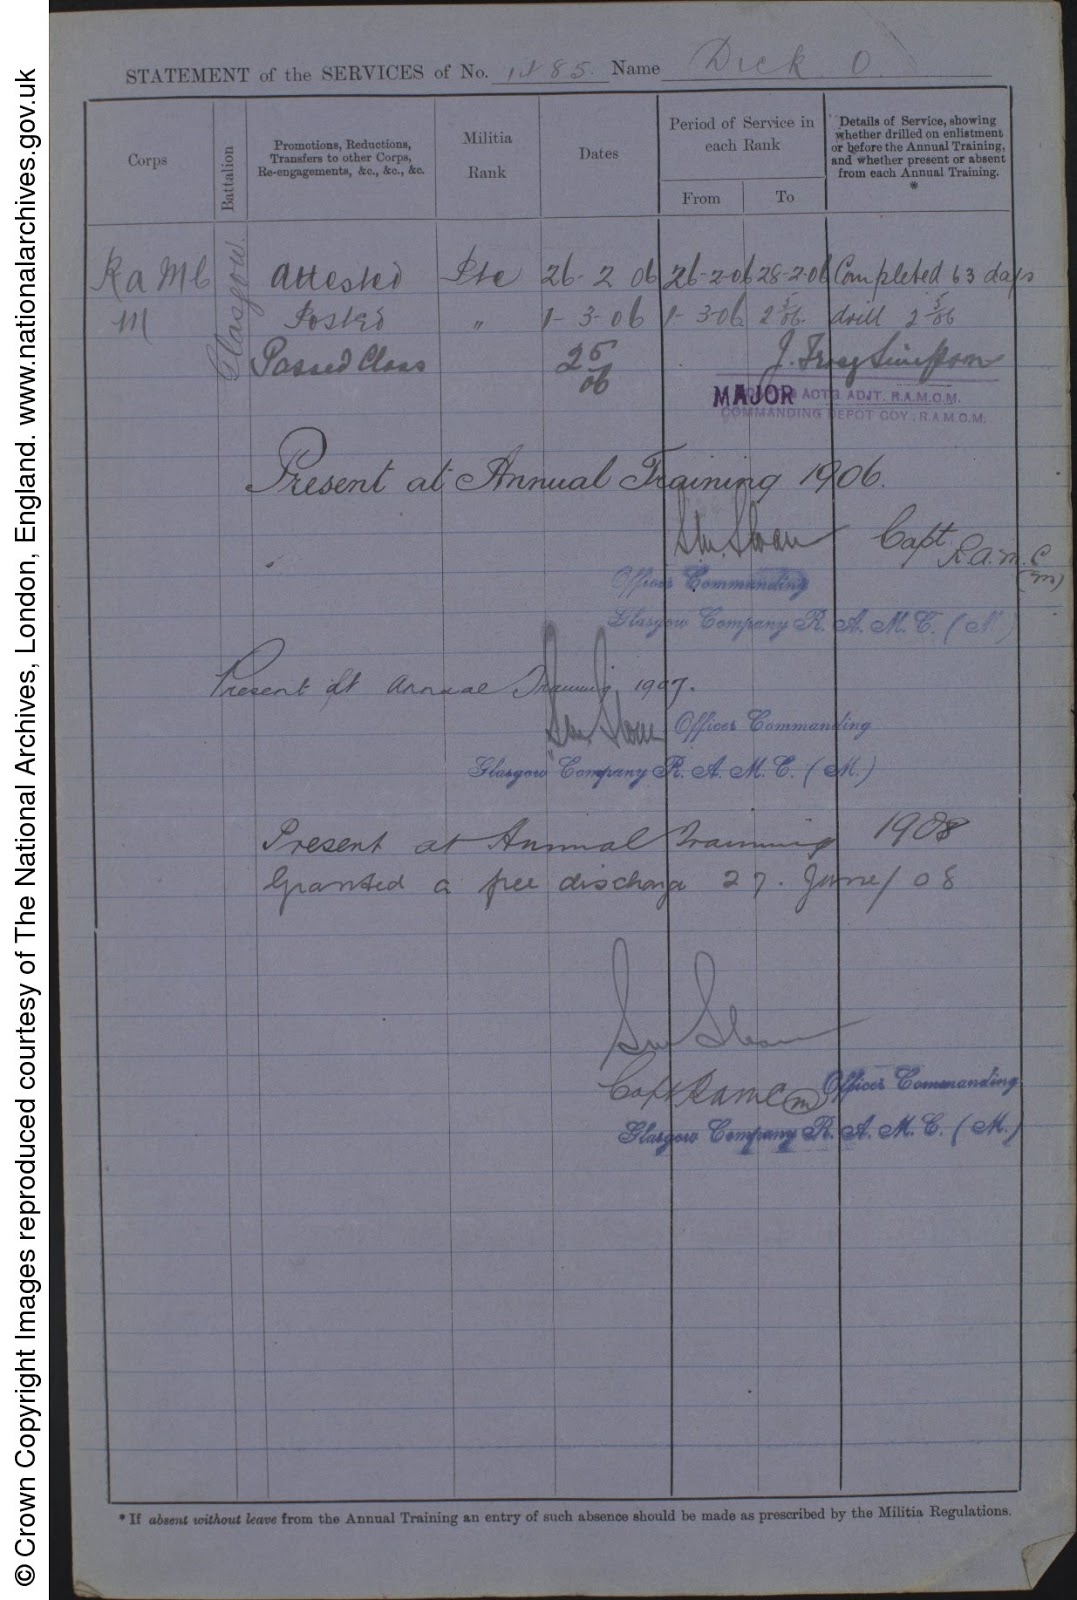 © Crown Copyright Images reproduced courtesy of The National Archives, London, England. www.nationalarchives.gov.uk
STATEMENT of the SERVICES of No. 85. Name Dick O.
Corps
Battalion
Promotions, Reductions,
Transfers to other Corps,
Re-engagements, &c., &c., &c.
Militia
Rank
Dates
Period of Service in
each Rank
From
To
Details of Service, showing
whether drilled on enlistment
or before the Annual Training,
and whether present or absent
from each Annual Training.
*
RAMC Glasgow. Attested Pte 26-2 06 26-2-06 28-2-06 Completed 63 days
M Posted " 1-3-06 1-3-06 2 5/06. drill 2 5/06
Passed Class 2 5/06 J. Simpson
MAJOR ACTG ADJT. R.A.M.C.M.
COMMANDING DEPOT COY. R.A.M.C.M.
Present at Annual Training 1906.
Sloan Capt R.A.M.C
(M)
Officer Commanding
Glasgow Company R. A. M. C. (M.)
Present at Annual Training 1907.
Sloan Officer Commanding
Glasgow Company R. A. M. C. (M.)
Present at Annual Training 1908
Granted a free discharge 27. June/08
Sloan
Capt RAMC M Officer Commanding
Glasgow Company R. A. M. C. (M.)
* If absent without leave from the Annual Training an entry of such absence should be made as prescribed by the Militia Regulations.